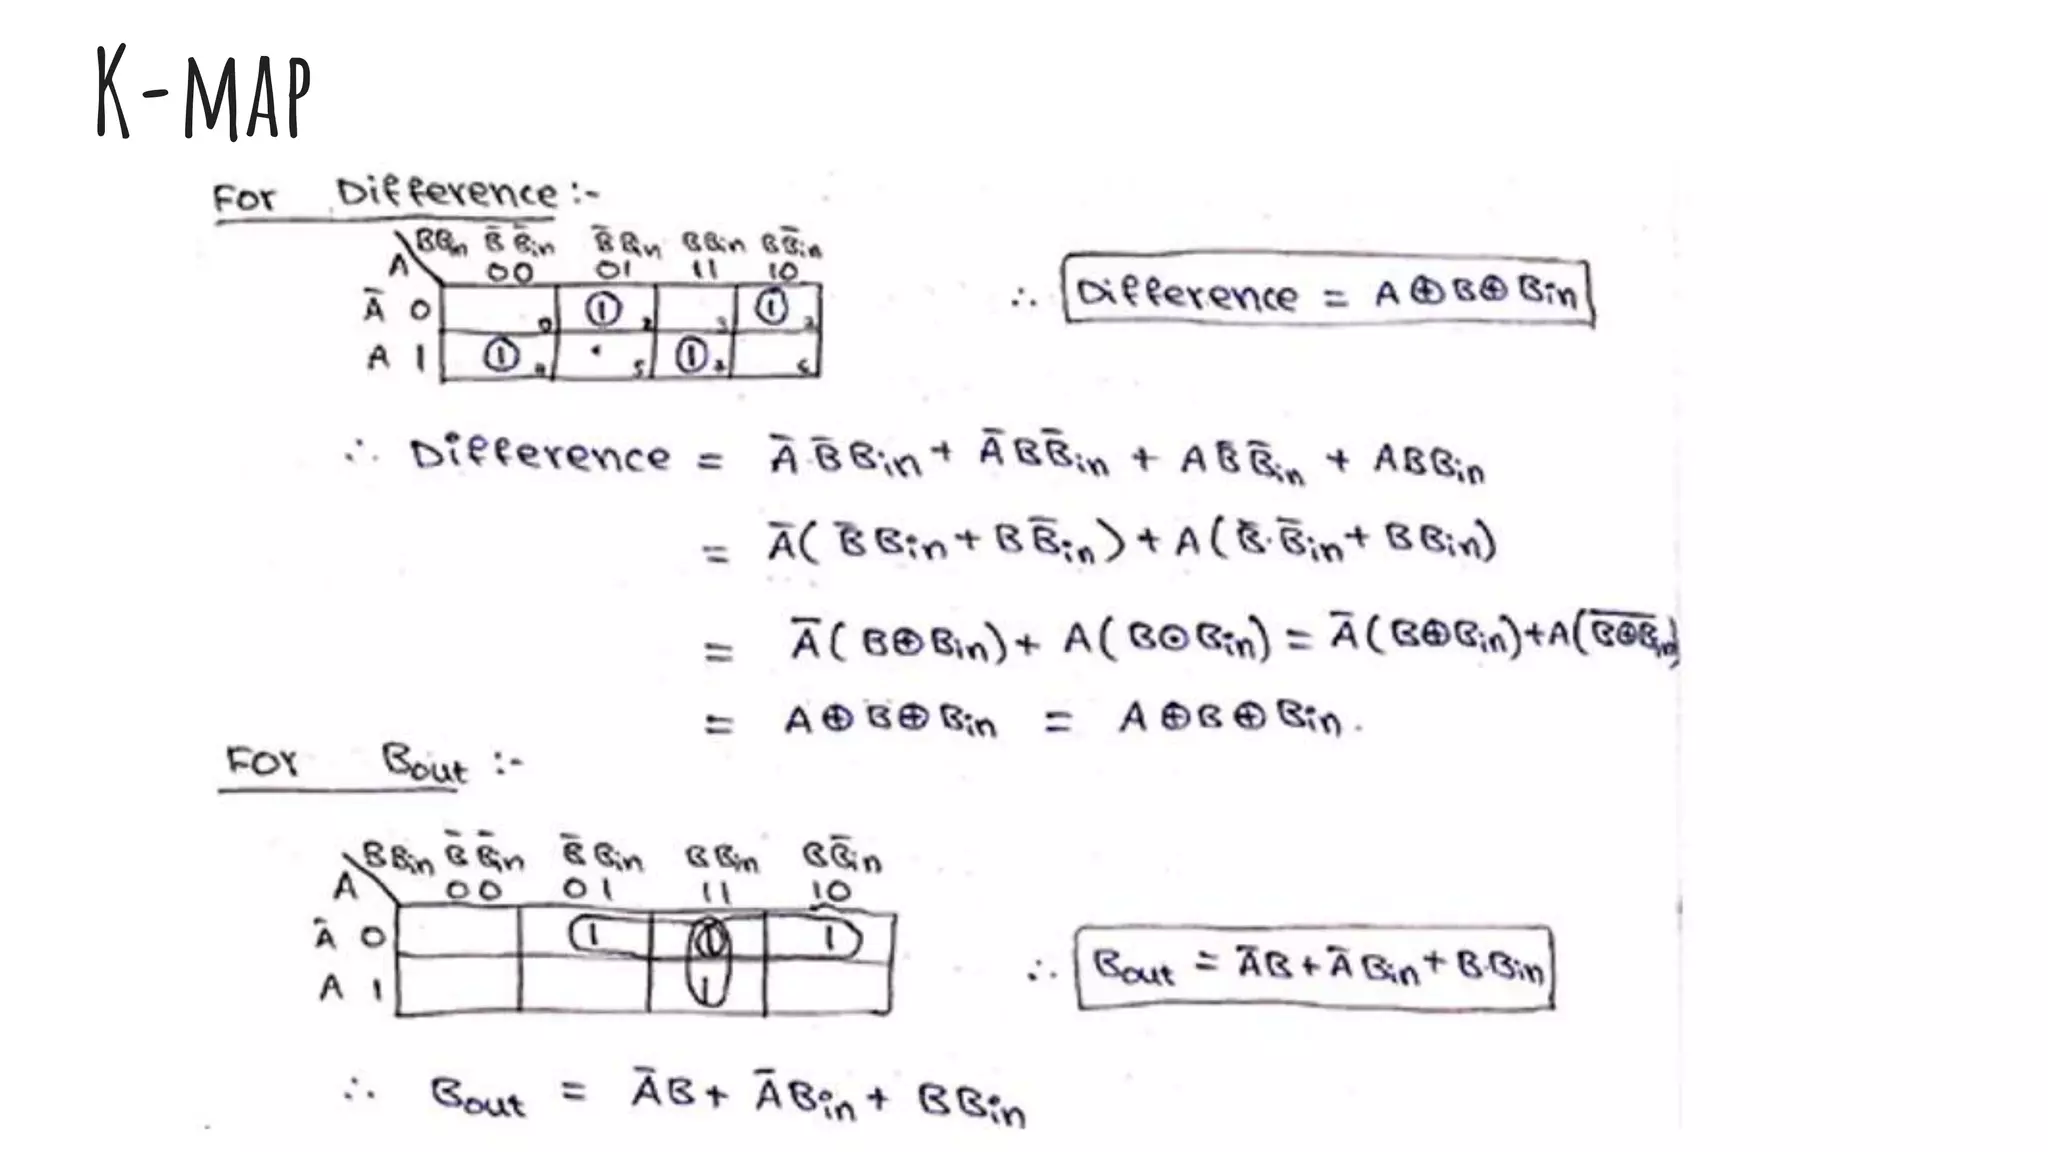 K-MAP
For Difference:-
BBin B̅ B̅in B̅ Bin BBin BB̅in
A 00 01 11 10
A̅ 0 1 1
A 1 1 5 1
∴ Difference = A ⊕ B ⊕ Bin
∴ Difference = A̅·B̅Bin + A̅BB̅in + AB̅B̅in + ABBin
= A̅( B̅Bin + BB̅in) + A (B̅·B̅in + BBin)
= A̅( B⊕Bin) + A( B⊙Bin) = A̅(B⊕Bin)+A(B̅⊕̅B̅i̅n̅)
= A⊕B⊕Bin = A⊕B⊕Bin.
FOr Bout :-
BBin B̅ B̅in B̅ Bin BBin BB̅in
A 00 01 11 10
A̅ 0 1 1 1
A 1 1
∴ Bout = A̅B + A̅Bin + B·Bin
∴ Bout = A̅B + A̅Bin + BBin